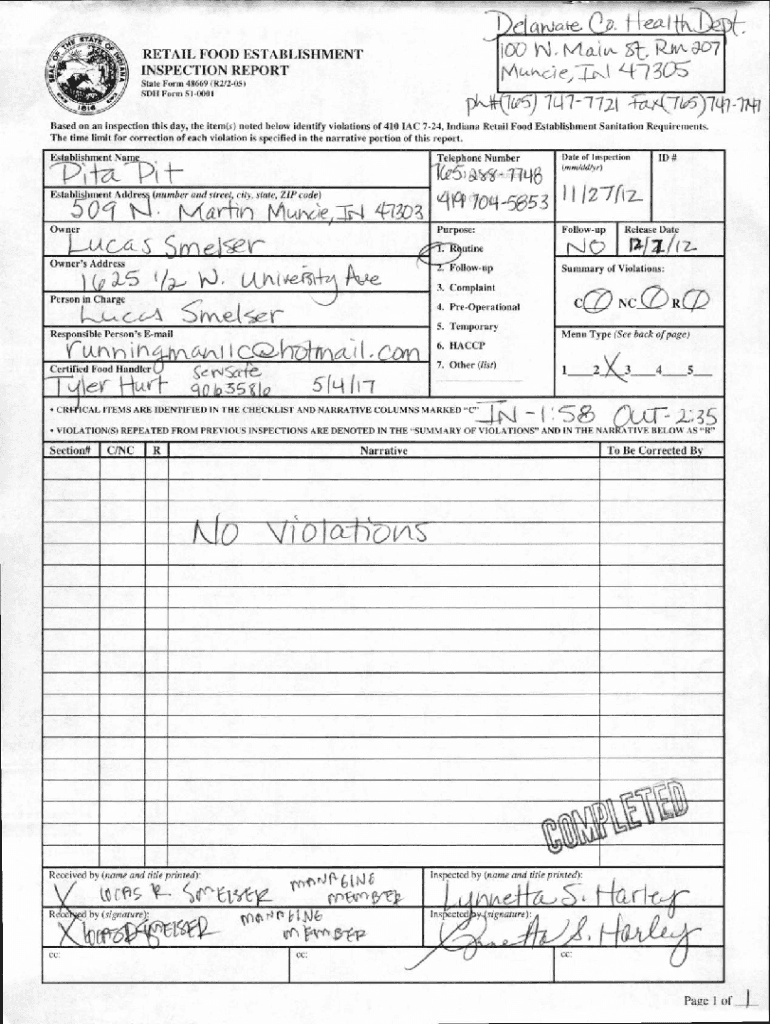 Delaware Co. Health Dept.
100 N. Main St. Rm 207
Muncie, IN 47305
ph#(765) 747-7721 Fax(765) 747-7747
SEAL OF THE STATE OF INDIANA
1816
RETAIL FOOD ESTABLISHMENT
INSPECTION REPORT
State Form 48669 (R2/2-05)
SDH Form 51-0001
Based on an inspection this day, the item(s) noted below identify violations of 410 IAC 7-24, Indiana Retail Food Establishment Sanitation Requirements.
The time limit for correction of each violation is specified in the narrative portion of this report.
Establishment Name
Pita Pit
Telephone Number
765 288-7748
419 704-5853
Date of Inspection
(mm/dd/yr)
11/27/12
ID #
Establishment Address (number and street, city, state, ZIP code)
509 N. Martin Muncie, IN 47303
Owner
Lucas Smelser
Purpose:
1. Routine
2. Follow-up
3. Complaint
4. Pre-Operational
5. Temporary
6. HACCP
7. Other (list)
Follow-up
NO
Release Date
12/7/12
Owner's Address
1625 1/2 W. University Ave
Summary of Violations:
C 0 NC 0 R 0
Person in Charge
Lucas Smelser
Responsible Person's E-mail
runningman11c@hotmail.com
Menu Type (See back of page)
1 2 X 3 4 5
Certified Food Handler
ServSafe
Tyler Hurt 9063586 5/4/17
• CRITICAL ITEMS ARE IDENTIFIED IN THE CHECKLIST AND NARRATIVE COLUMNS MARKED "C"
IN - 1:58 OUT - 2:35
• VIOLATION(S) REPEATED FROM PREVIOUS INSPECTIONS ARE DENOTED IN THE "SUMMARY OF VIOLATIONS" AND IN THE NARRATIVE BELOW AS "R"
Section# C/NC R Narrative To Be Corrected By
No Violations
COMPLETED
Received by (name and title printed):
X LUCAS R. SMELSER MANAGING MEMBER
Inspected by (name and title printed):
Lynnetta S. Harley
Received by (signature):
X LUCAS R SMELSER MANAGING MEMBER
Inspected by (signature):
Lynnetta S. Harley
cc: cc: cc:
Page 1 of 1